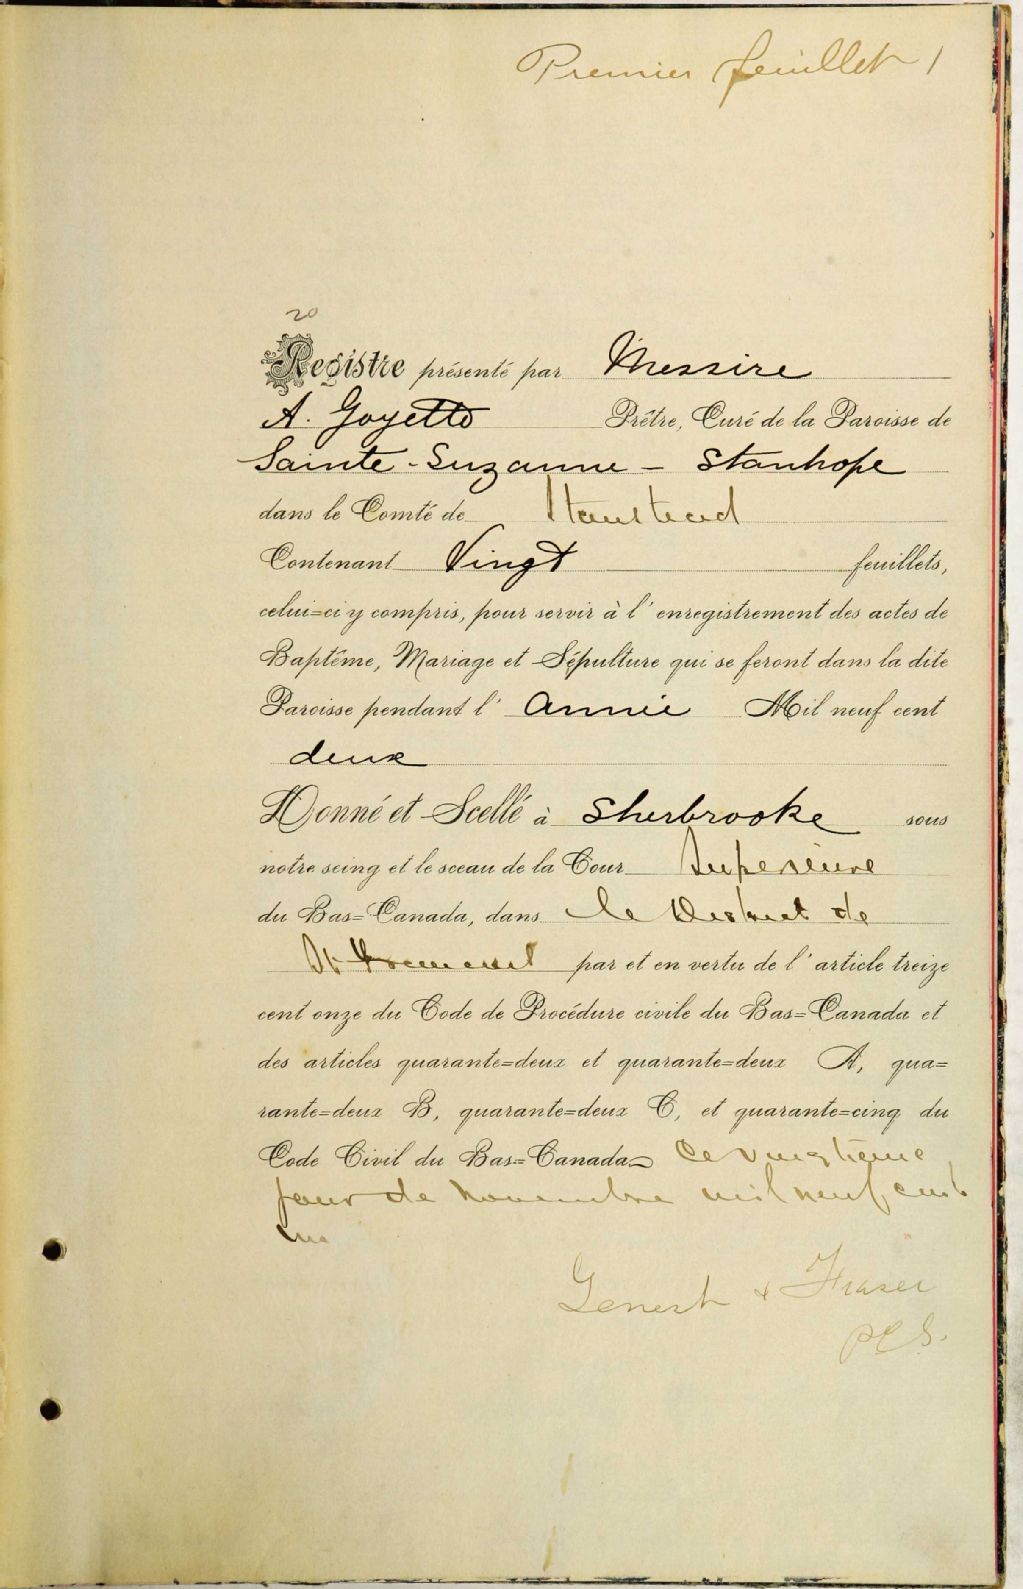 Premier feuillet 1
20
Registre présenté par Messire
A. Goyette Prêtre, Curé de la Paroisse de
Sainte-Suzanne - Stanhope
dans le Comté de Stanstead
Contenant Vingt feuillets,
celui=ci y compris, pour servir à l'enregistrement des actes de
Baptême, Mariage et Sépulture qui se feront dans la dite
Paroisse pendant l'année Mil neuf cent
deux
Donné et Scellé à Sherbrooke sous
notre seing et le sceau de la Cour Superieure
du Bas=Canada, dans le District de
St Francois par et en vertu de l'article treize
cent onze du Code de Procédure civile du Bas=Canada et
des articles quarante=deux et quarante=deux A, qua=
rante=deux B, quarante=deux C, et quarante=cinq du
Code Civil du Bas=Canada Ce vingtième
jour de Novembre mil neuf cent
un
Genest & Fraser
PCS.